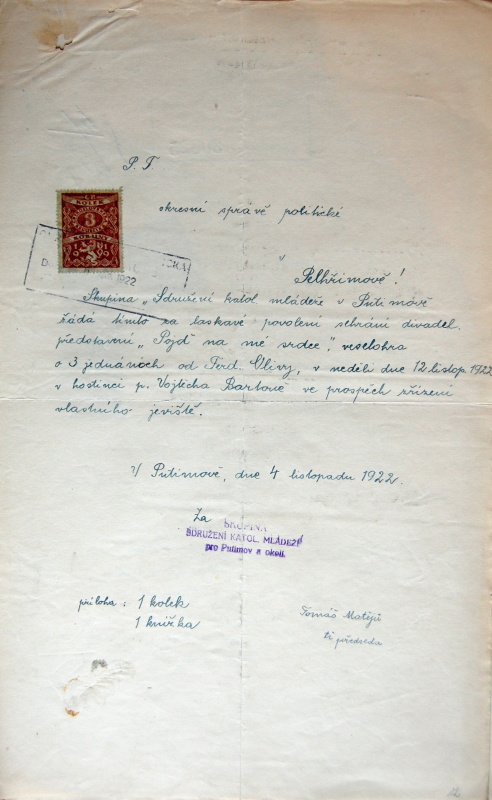 P. T.
okresní správě politické
v Pelhřimově!
Skupina „Sdružení katol. mládeže v Putimově
žádá tímto za laskavé povolení sehrání divadel.
představení „Pojď na mé srdce", veselohra
o 3 jednáních od Ferd. Olivy, v neděli dne 12. listop. 1922
v hostinci p. Vojtěcha Bartoně ve prospěch zřízení
vlastního jeviště.
V Putimově, dne 4 listopadu 1922.
Za
SKUPINA
SDRUŽENÍ KATOL. MLÁDEŽE
pro Putimov a okolí.
příloha: 1 kolek
1 knížka
Tomáš Matějů
předseda
KOLEK
3
KORUNY
1922
12